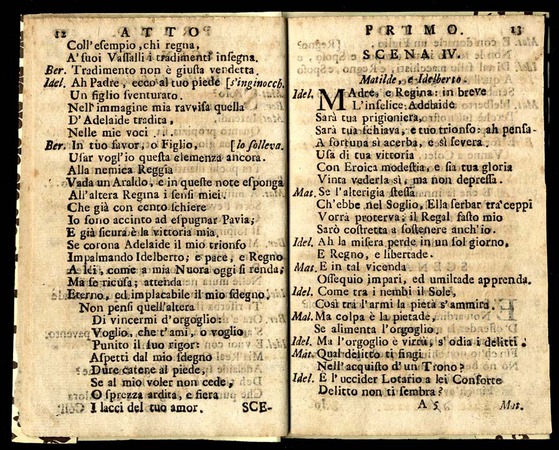 12 ATTO
Coll'esempio, chi regna,
A' suoi Vassalli i tradimenti insegna.
Ber. Tradimento non è giusta vendetta.
Idel. Ah Padre, ecco al tuo piede [s'inginocch.
Un figlio sventurato.
Nell'immagine mia ravvisa quella
D'Adelaide tradita,
Nelle mie voci
Ber. In tuo favor, o Figlio, [lo solleva.
Usar vogl'io questa clemenza ancora.
Alla nemica Reggia
Vada un Araldo, e in queste note esponga
All'altera Regina i sensi miei.
Che già con cento schiere
Io sono accinto ad espugnar Pavia;
E già sicura è la vittoria mia,
Se corona Adelaide il mio trionfo
Impalmando Idelberto; e pace, e Regno
A lei, come a mia Nuora oggi si renda;
Ma se ricusa; attenda
Eterno, ed implacabile il mio sdegno.
Non pensi quell'altera
Di vincermi d'orgoglio:
Voglio, che t'ami, o voglio
Punito il suo rigor:
Aspetti dal mio sdegno
Dure catene al piede,
Se al mio voler non cede,
O sprezza ardita, e fiera
I lacci del tuo amor. SCE-
PRIMO. 13
SCENA IV.
Matilde, e Idelberto.
Idel. MAdre, e Regina: in breve
L'infelice Adelaide
Sarà tua prigioniera,
Sarà tua schiava, e tuo trionfo: ah pensa-
A fortuna sì acerba, e sì severa.
Usa di tua vittoria
Con Eroica modestia, e sia tua gloria
Vinta vederla sì, ma non depressa.
Mat. Se l'alterigia stessa
Ch'ebbe nel Soglio, Ella serbar tra' ceppi
Vorrà proterva; il Regal fasto mio
Sarò costretta a sostenere anch'io.
Idel. Ah la misera perde in un sol giorno,
E Regno, e libertade.
Mat. E in tal vicenda
Ossequio impari, ed umiltade apprenda.
Idel. Come tra i nembi il Sole,
Così tra l'armi la pietà s'ammira.
Mat. Ma colpa è la pietade,
Se alimenta l'orgoglio.
Idel. Ma l'orgoglio è virtù, s'odia i delitti.
Mat. Qual delitto ti fingi
Nell'acquisto d'un Trono?
Idel. E l'uccider Lotario a lei Consorte
Delitto non ti sembra?
A 5 Mat.